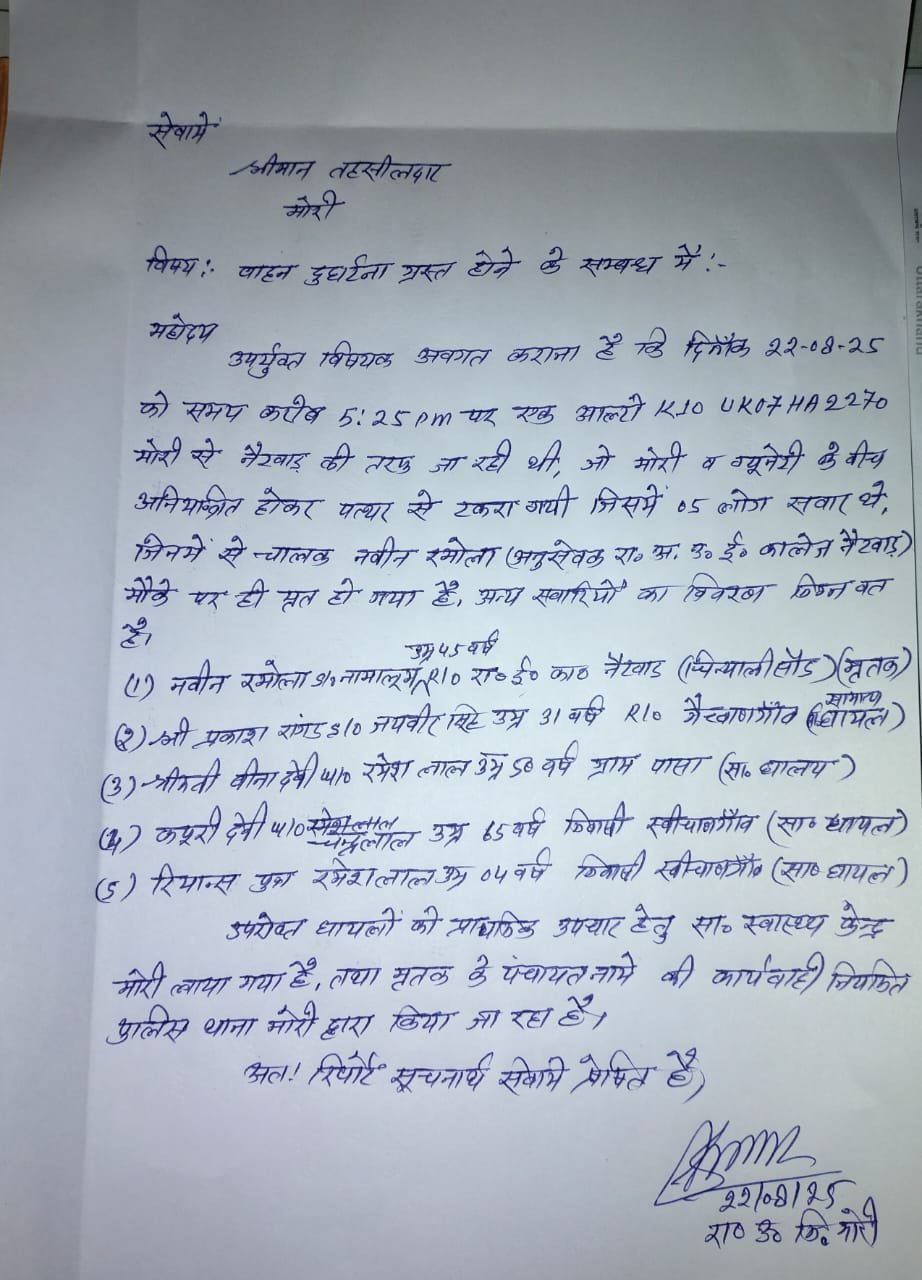 सेवामें
श्रीमान तहसीलदार
मोरी
विषय:- वाहन दुर्घटना ग्रस्त होने के सम्बन्ध में:-
महोदय
उपर्युक्त विषयक अवगत कराना है कि दिनाँक 22-08-25
को समय करीब 5:25 PM पर एक आल्टो K10 UK07HA2270
मोरी से नैटवाड़ की तरफ जा रही थी, जो मोरी व ग्यूनेटी के बीच
अनियन्त्रित होकर पत्थर से टकरा गयी जिसमें 05 लोग सवार थे,
जिनमें से चालक नवीन रमोला (अनुसेवक रा० अ. उ० ई० कालेज नैटवाड़)
मौके पर ही मृत हो गया है, अन्य सवारियों का विवरण निम्न वत
है।
उम्र 45 वर्ष
(1) नवीन रमोला S/o नामालूम R/o रा० ई० का० नैटवाड (चिन्यालीसौड) (मृतक)
सामान्य
(2) श्री प्रकाश रांगड S/o जयवीर सिंह उम्र 31 वर्ष R/o (घायल)
(3) श्रीमती बीना देवी W/o रमेश लाल उम्र 50 वर्ष ग्राम पासा (सा० घालय)
(4) कपूरी देवी W/o चन्द्रलाल उम्र 65 वर्ष निवासी खीचाणगाँव (सा० घायल)
(5) रियान्स पुत्र रमेशलाल उम्र 04 वर्ष निवासी खीचाणगाँव (सा० घायल)
उपरोक्त घायलों को प्राथमिक उपचार हेतु सा० स्वास्थ्य केन्द्र
मोरी लाया गया है, तथा मृतक के पंचायतनामे की कार्यवाही नियमित
पुलिस थाना मोरी द्वारा किया जा रहा है।
अतः रिपोर्ट सूचनार्थ सेवामे प्रेषित है।
22/08/25
रा० उ० नि० मोरी